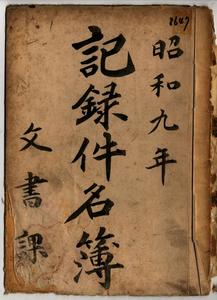 1647
昭和九年
記録件名簿
文書課